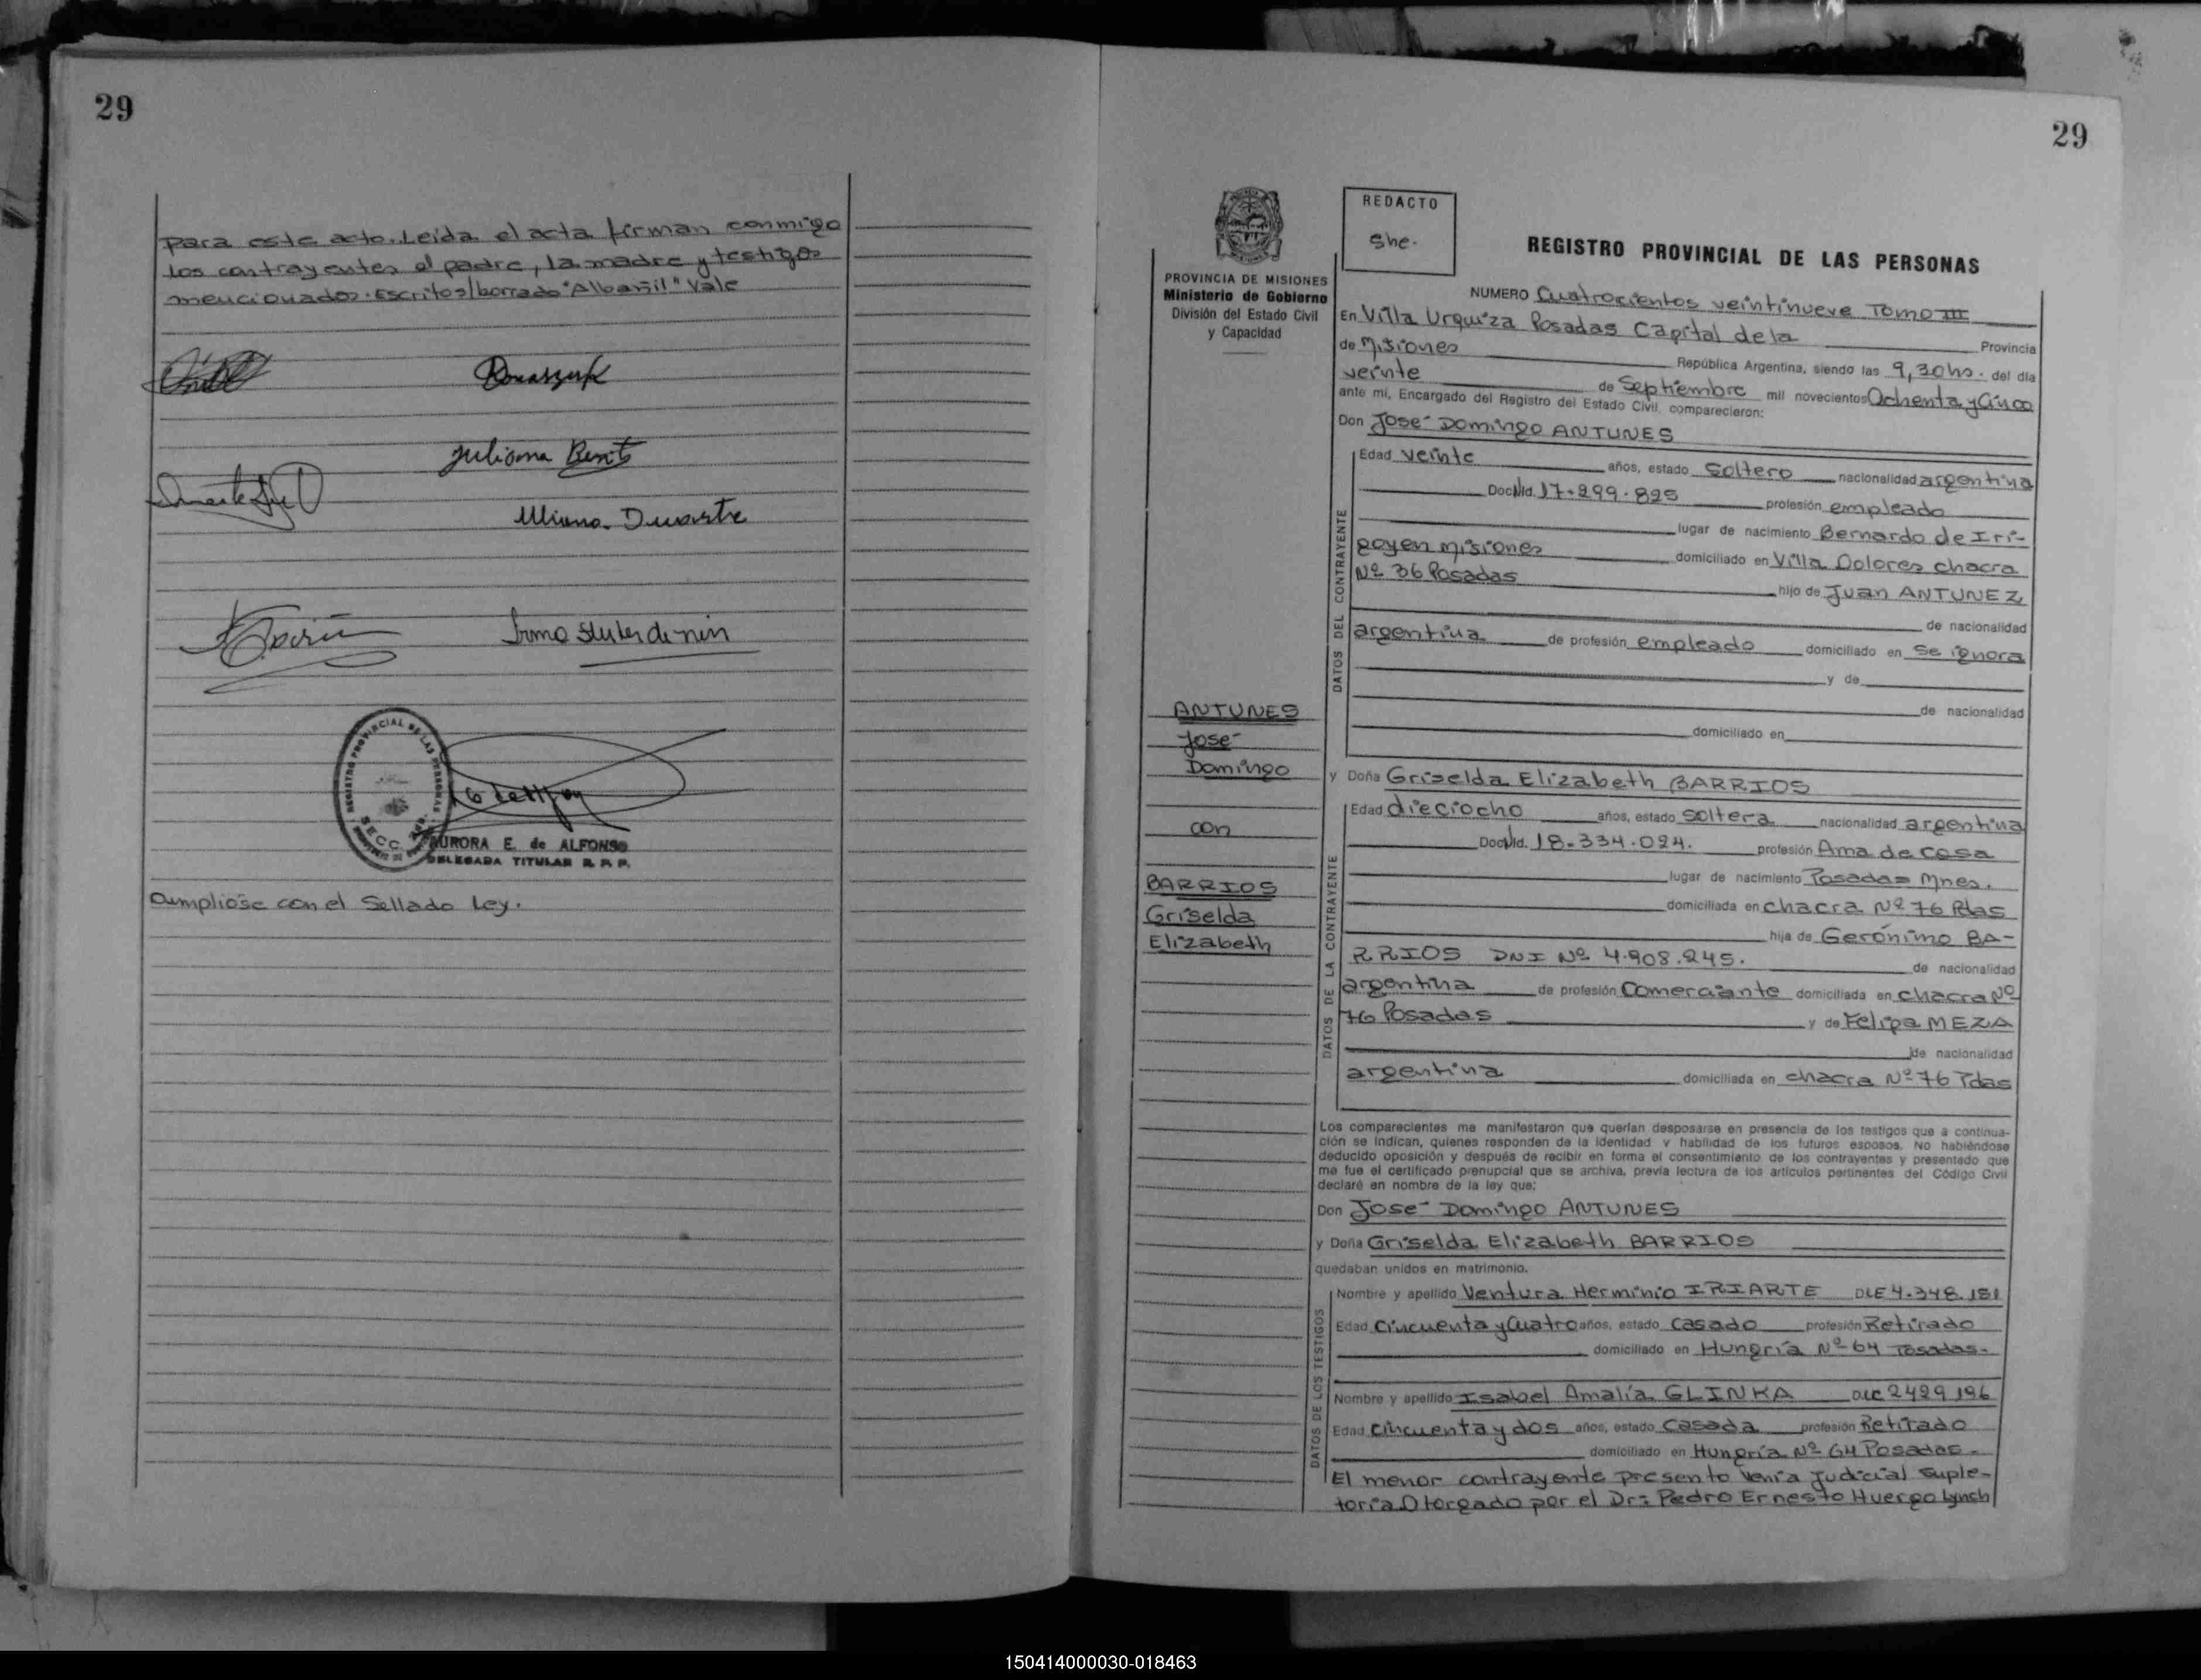 29
para este acto. Leida el acta firman conmigo
los contrayentes el padre, la madre y testigos
mencionados. Escritos/borrado "Albañil" Vale
Juliana
Duarte
Irma
REGISTRO PROVINCIAL DE LAS PERSONAS
SECC.
AURORA E. de ALFONSO
DELEGADA TITULAR R. P. P.
Cumpliose con el Sellado Ley.
29
PROVINCIA DE MISIONES
Ministerio de Gobierno
División del Estado Civil
y Capacidad
ANTUNES
José
Domingo
con
BARRIOS
Griselda
Elizabeth
REDACTO
She.
REGISTRO PROVINCIAL DE LAS PERSONAS
NUMERO Cuatrocientos veintinueve Tomo III
En Villa Urquiza Posadas Capital de la Provincia
de Misiones República Argentina, siendo las 9,30 hs. del día
veinte de Septiembre mil novecientos Ochenta y Cinco
ante mi, Encargado del Registro del Estado Civil, comparecieron:
Don José Domingo ANTUNES
DATOS DEL CONTRAYENTE
Edad veinte años, estado Soltero nacionalidad argentina
Doc Nld. 17.299.825 profesión empleado
lugar de nacimiento Bernardo de Iri-
goyen Misiones domiciliado en Villa Dolores chacra
Nº 36 Posadas hijo de Juan ANTUNEZ
de nacionalidad
argentina de profesión empleado domiciliado en se ignora
y de
de nacionalidad
domiciliado en
y Doña Griselda Elizabeth BARRIOS
DATOS DE LA CONTRAYENTE
Edad dieciocho años, estado soltera nacionalidad argentina
Doc Nld. 18.334.024. profesión Ama de casa
lugar de nacimiento Posadas Mnes.
domiciliada en chacra Nº 76 Pdas
hija de Gerónimo BA-
RRIOS DNI Nº 4.908.245. de nacionalidad
argentina de profesión Comerciante domiciliada en chacra Nº
76 Posadas y de Felipa MEZA
de nacionalidad
argentina domiciliada en chacra Nº 76 Pdas
Los comparecientes me manifestaron que querían desposarse en presencia de los testigos que a continua-
ción se indican, quienes responden de la identidad y habilidad de los futuros esposos. No habiéndose
deducido oposición y después de recibir en forma el consentimiento de los contrayentes y presentado que
me fue el certificado prenupcial que se archiva, previa lectura de los artículos pertinentes del Código Civil
declaré en nombre de la ley que:
Don José Domingo ANTUNES
y Doña Griselda Elizabeth BARRIOS
quedaban unidos en matrimonio.
DATOS DE LOS TESTIGOS
Nombre y apellido Ventura Herminio IRIARTE DLE 4.348.151
Edad Cincuenta y Cuatro años, estado casado profesión Retirado
domiciliado en Hungría Nº 64 Posadas.
Nombre y apellido Isabel Amalia GLINKA DLC 2429196
Edad cincuenta y dos años, estado Casada profesión Retirado
domiciliado en Hungría Nº 64 Posadas.
El menor contrayente presento Venia Judicial suple-
toria Otorgado por el Dr: Pedro Ernesto Huergo Lynch
150414000030-018463